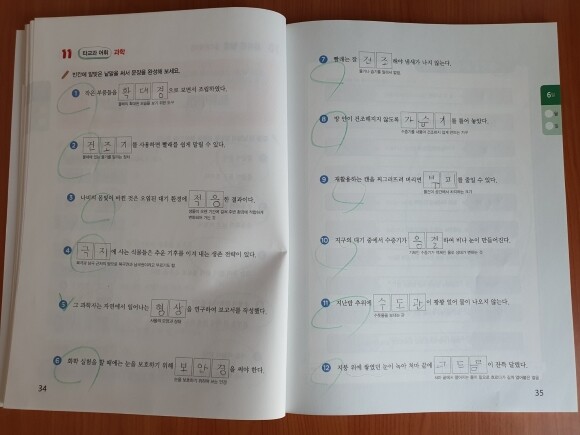 11 타교과 어휘 과학
빈칸에 알맞은 낱말을 써서 문장을 완성해 보세요.
1 작은 부품들을 확대경으로 보면서 조립하였다.
2 건조기를 사용하면 빨래를 쉽게 말릴 수 있다.
3 나비의 몸빛이 어떤 것은 오염된 대기 환경에 적응한 결과이다.
4 극지에 사는 식물들은 추운 기후를 이겨 내는 생존 전략이 있다.
5 그 과학자는 자연에서 일어나는 형상을 연구하여 보고서를 작성했다.
6 과학 실험을 할 때에는 눈을 보호하기 위해 보안경을 써야 한다.
34
7 빨래는 잘 건조해야 냄새가 나지 않는다.
8 방 안이 건조해지지 않도록 가습기를 틀어 놓았다.
9 재활용하는 캔을 찌그러뜨려 버리면 부피를 줄일 수 있다.
10 지구의 대기 중에서 수증기가 응결하여 비나 눈이 만들어진다.
11 지난밤 추위에 수도관이 꽝꽝 얼어 물이 나오지 않는다.
12 지붕 위에 쌓였던 눈이 녹아 처마 끝에 고드름이 잔뜩 달렸다.
35